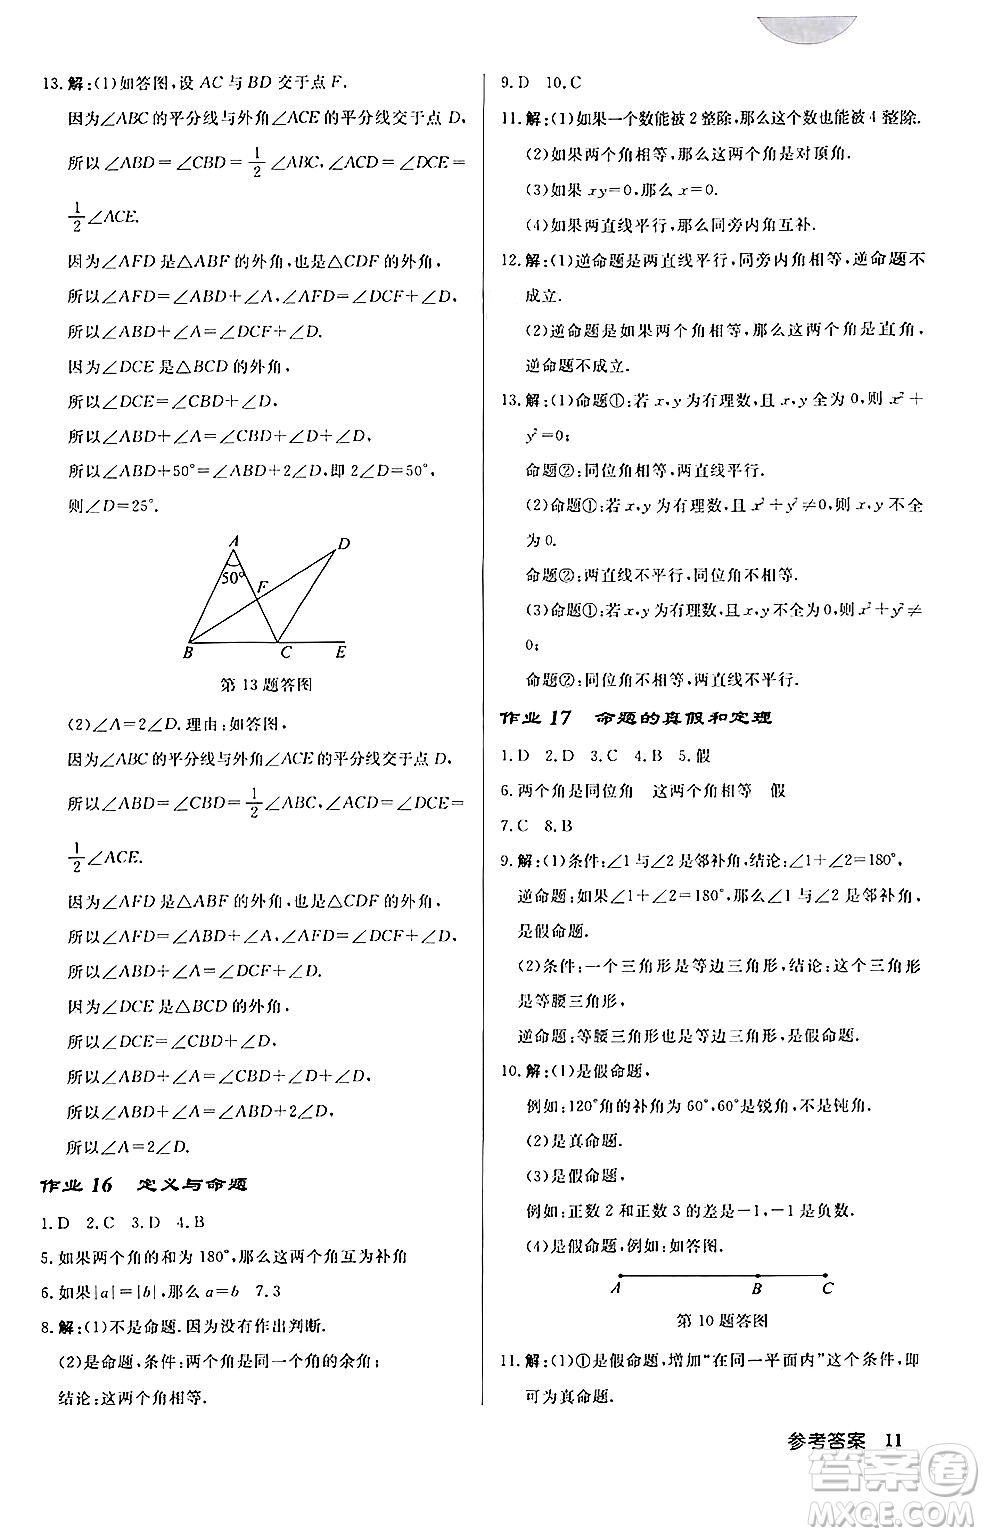 13.解:(1)如答图,设 AC 与 BD 交于点 F.
因为∠ABC的平分线与外角∠ACE的平分线交于点 D,
所以∠ABD=∠CBD=1/2∠ABC,∠ACD=∠DCE=
1/2∠ACE.
因为∠AFD是△ABF的外角,也是△CDF的外角,
所以∠AFD=∠ABD+∠A,∠AFD=∠DCF+∠D,
所以∠ABD+∠A=∠DCF+∠D.
因为∠DCE是△BCD的外角,
所以∠DCE=∠CBD+∠D,
所以∠ABD+∠A=∠CBD+∠D+∠D,
所以∠ABD+50°=∠ABD+2∠D,即2∠D=50°,
则∠D=25°.
A
D
50°
F
B C E
第13题答图
(2)∠A=2∠D.理由:如答图,
因为∠ABC的平分线与外角∠ACE的平分线交于点 D,
所以∠ABD=∠CBD=1/2∠ABC,∠ACD=∠DCE=
1/2∠ACE.
因为∠AFD是△ABF的外角,也是△CDF的外角,
所以∠AFD=∠ABD+∠A,∠AFD=∠DCF+∠D,
所以∠ABD+∠A=∠DCF+∠D.
因为∠DCE是△BCD的外角,
所以∠DCE=∠CBD+∠D,
所以∠ABD+∠A=∠CBD+∠D+∠D,
所以∠ABD+∠A=∠ABD+2∠D,
所以∠A=2∠D.
作业16 定义与命题
1.D 2.C 3.D 4.B
5.如果两个角的和为180°,那么这两个角互为补角
6.如果|a|=|b|,那么a=b 7.3
8.解:(1)不是命题.因为没有作出判断.
(2)是命题,条件:两个角是同一个角的余角;
结论:这两个角相等.
9.D 10.C
11.解:(1)如果一个数能被2整除,那么这个数也能被4整除.
(2)如果两个角相等,那么这两个角是对顶角.
(3)如果xy=0,那么x=0.
(4)如果两直线平行,那么同旁内角互补.
12.解:(1)逆命题是两直线平行,同旁内角互补,逆命题不
成立.
(2)逆命题是如果两个角相等,那么这两个角是直角,
逆命题不成立.
13.解:(1)命题①:若x,y为有理数,且x,y全为0,则x²+
y²=0;
命题②:同位角相等,两直线平行.
(2)命题①:若x,y为有理数,且x²+y²≠0,则x,y不全
为0.
命题②:两直线不平行,同位角不相等.
(3)命题①:若x,y为有理数,且x,y不全为0,则x²+y²≠
0;
命题②:同位角不相等,两直线不平行.
作业17 命题的真假和定理
1.D 2.D 3.C 4.B 5.假
6.两个角是同位角 这两个角相等 假
7.C 8.B
9.解:(1)条件:∠1与∠2是邻补角,结论:∠1+∠2=180°,
逆命题:如果∠1+∠2=180°,那么∠1与∠2是邻补角,
是假命题.
(2)条件:一个三角形是等边三角形,结论:这个三角形
是等腰三角形,
逆命题:等腰三角形也是等边三角形,是假命题.
10.解:(1)是假命题,
例如:120°角的补角为60°,60°是锐角,不是钝角.
(2)是真命题.
(3)是假命题,
例如:正数2和正数3的差是-1,-1是负数.
(4)是假命题,例如:如答图.
A B C
第10题答图
11.解:(1)①是假命题,增加“在同一平面内”这个条件,即
可为真命题.
参考答案 11
答案圈
MXQE.COM